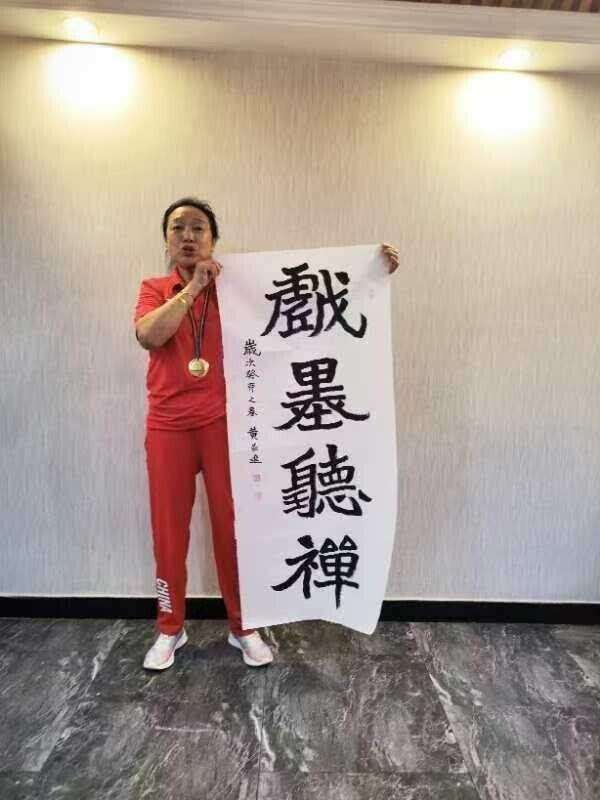 戲墨聽禪
歲次癸卯之春 黃
CHINA